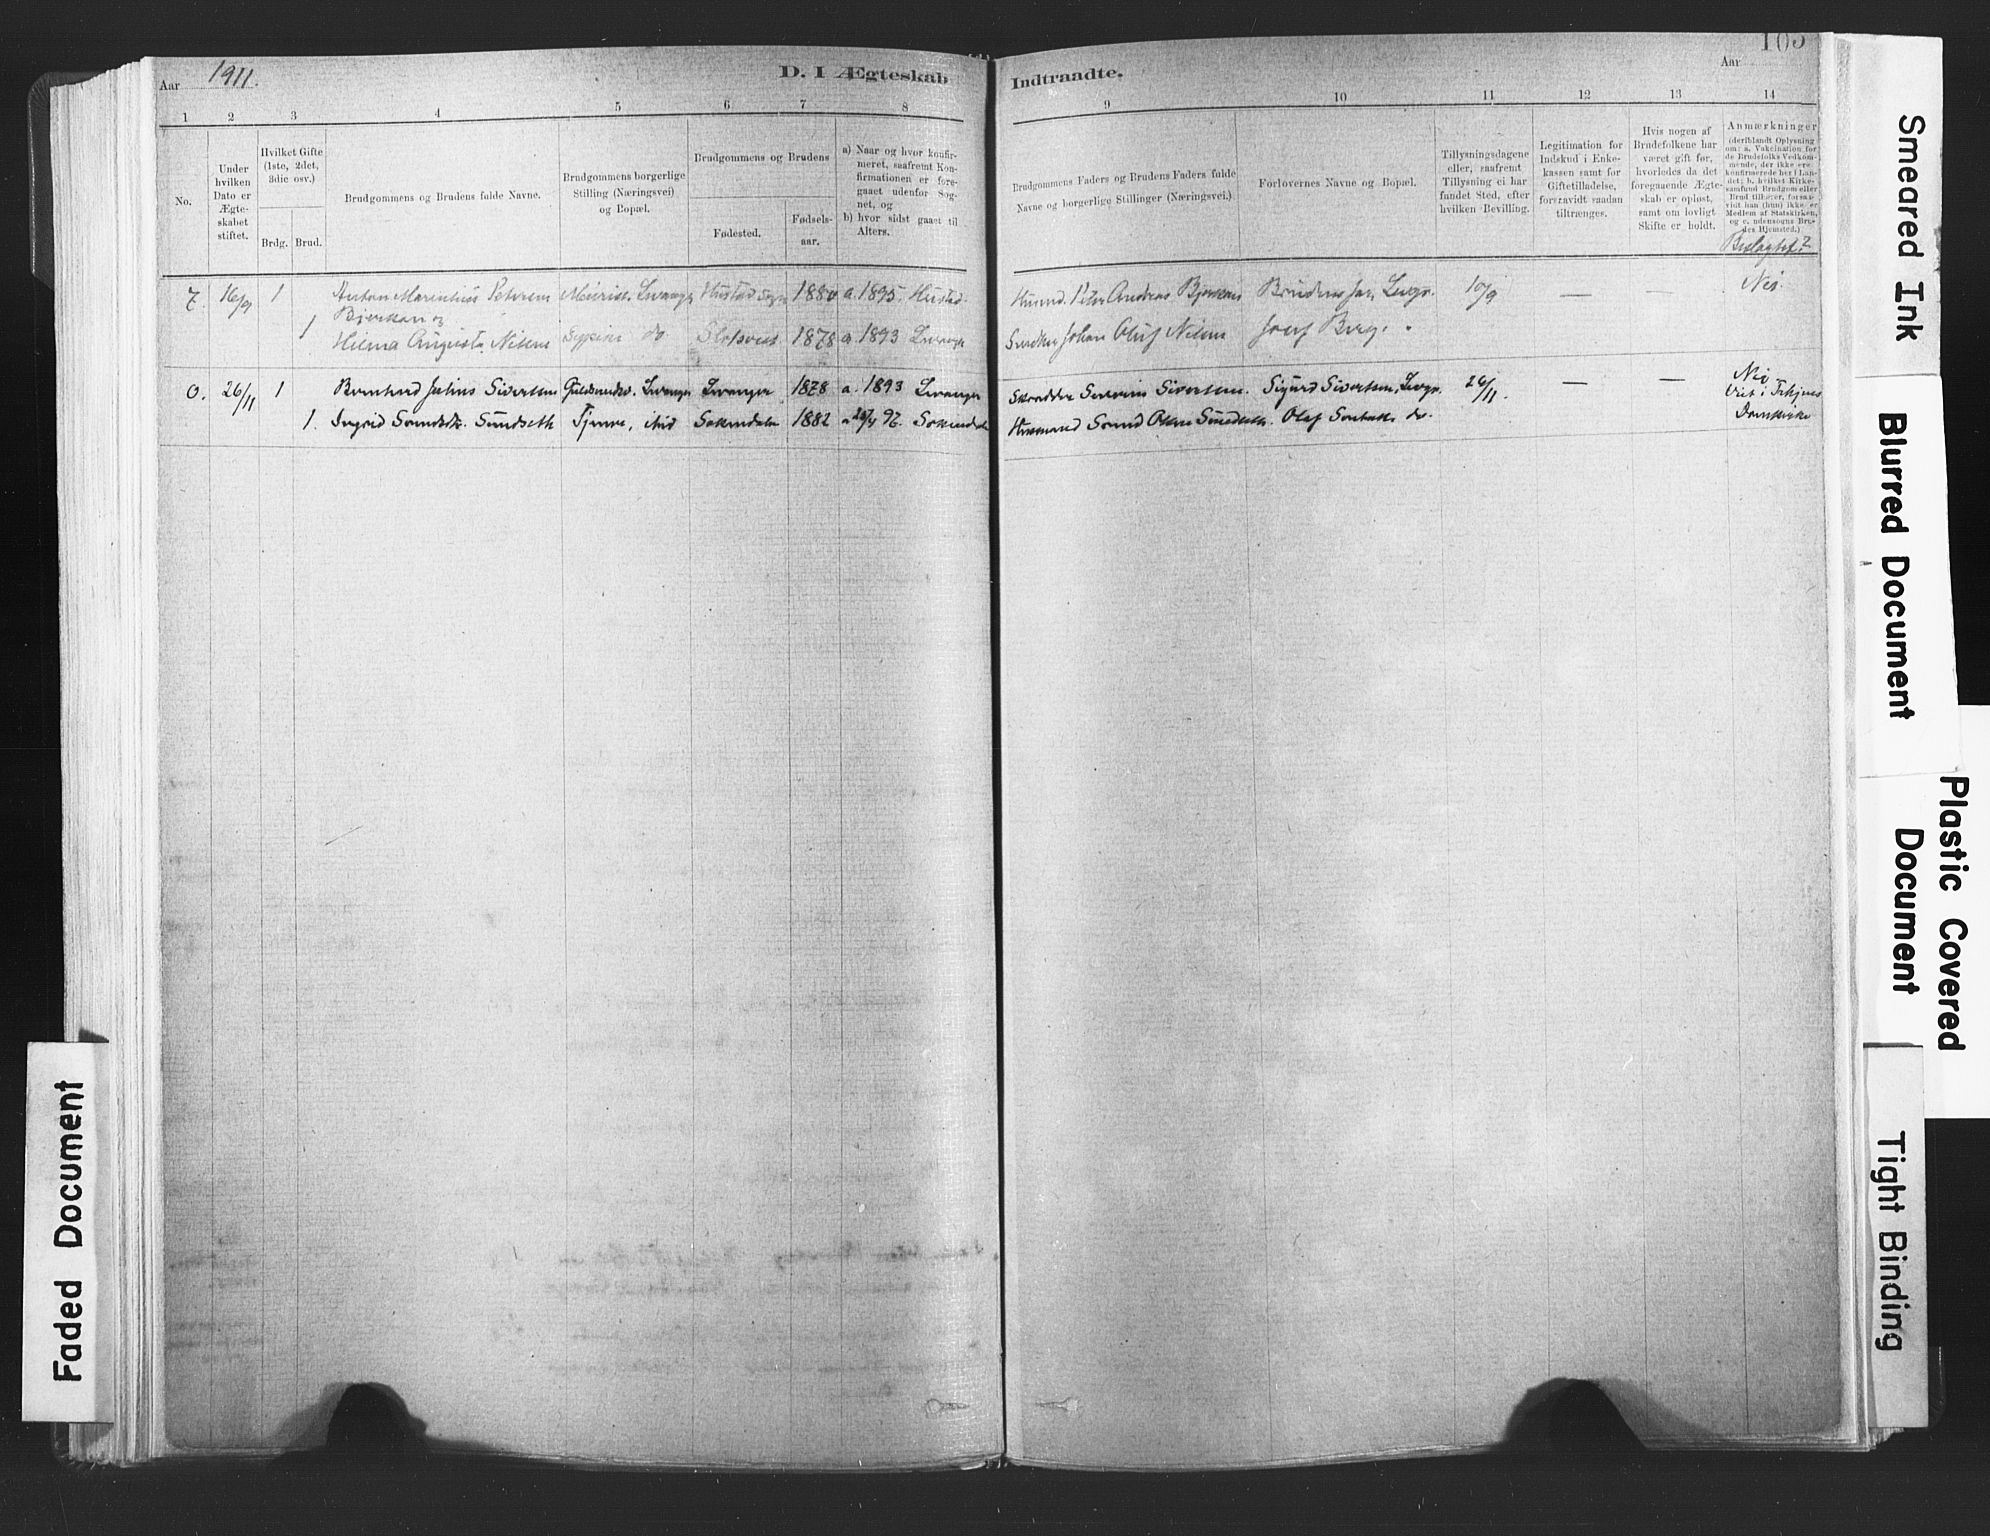 Aar 1911.
D. I Ægteskab
Indtraadte.
Aar
105
1 2 3 4 5 6 7 8
9 10 11 12 13 14
No.
Under hvilken Dato er Ægte- skabet stiftet.
Hvilket Gifte (1ste, 2det, 3die osv.)
Brdg. Brud.
Brudgommens og Brudens fulde Navne.
Brudgommens borgerlige Stilling (Næringsvei) og Bopæl.
Brudgommens og Brudens
Fødested.
Fødsels- aar.
a) Naar og hvor konfir- meret, saafremt Kon- firmationen er fore- gaaet udenfor Sog- net, og
b) hvor sidst gaaet til Alters.
Brudgommens Faders og Brudens Faders fulde Navne og borgerlige Stillinger (Næringsvei.)
Forlovernes Navne og Bopæl.
Tillysningsdagene eller, saafremt Tillysning ei har fundet Sted, efter hvilken Bevilling.
Legitimation for Indskud i Enke- kassen samt for Giftetilladelse, forsaavidt saadan tiltrænges.
Hvis nogen af Brudefolkene har været gift før, hvorledes da det foregaaende Ægte- skab er opløst, samt om lovligt Skifte er holdt.
Anmærkninger (deriblandt Oplysning om: a. Vakcination for de Brudefolks Vedkom- mende, der ikke ere konfirmerede her i Lan- det; b. hvilket Kirke- samfund Brudgom eller Brud tilhører, forsaa- vidt han (hun) ikke er Medlem af Statskirken, og c. udensogns Bru- des Hjemsted.)
Beslægtet?
7. 16/9 1 Anton Marentius Petersen Levanger Hustad sogn 1880 a. 1895. Hustad.
Bjerkan og
1 Hilma Augusta Nilsen do 1878 a. 1893 Levanger
Husmd. Peter Andreas Bjerkan Brudens far, Levgr. 10/9 — — Nei.
Johan Oluf Nilsen Josef Berg.
0. 26/11 1 Bernhard Julius Sivertsen Guldsmedsv. Levanger Levanger 1878 a. 1893 Levanger
1. Ingrid Sundseth Tjener, ibid Soknedalen 1882 97. Soknedalen
Skrædder Severin Sivertsen. Sigurd Sivertsen, Levgr. 26/11. — — Nei
Viet i Trhjems
Husmand Olsen Sundseth. Olaf do.
Domkirke
Smeared Ink
Blurred Document
Plastic Covered Document
Tight Binding
Faded Document